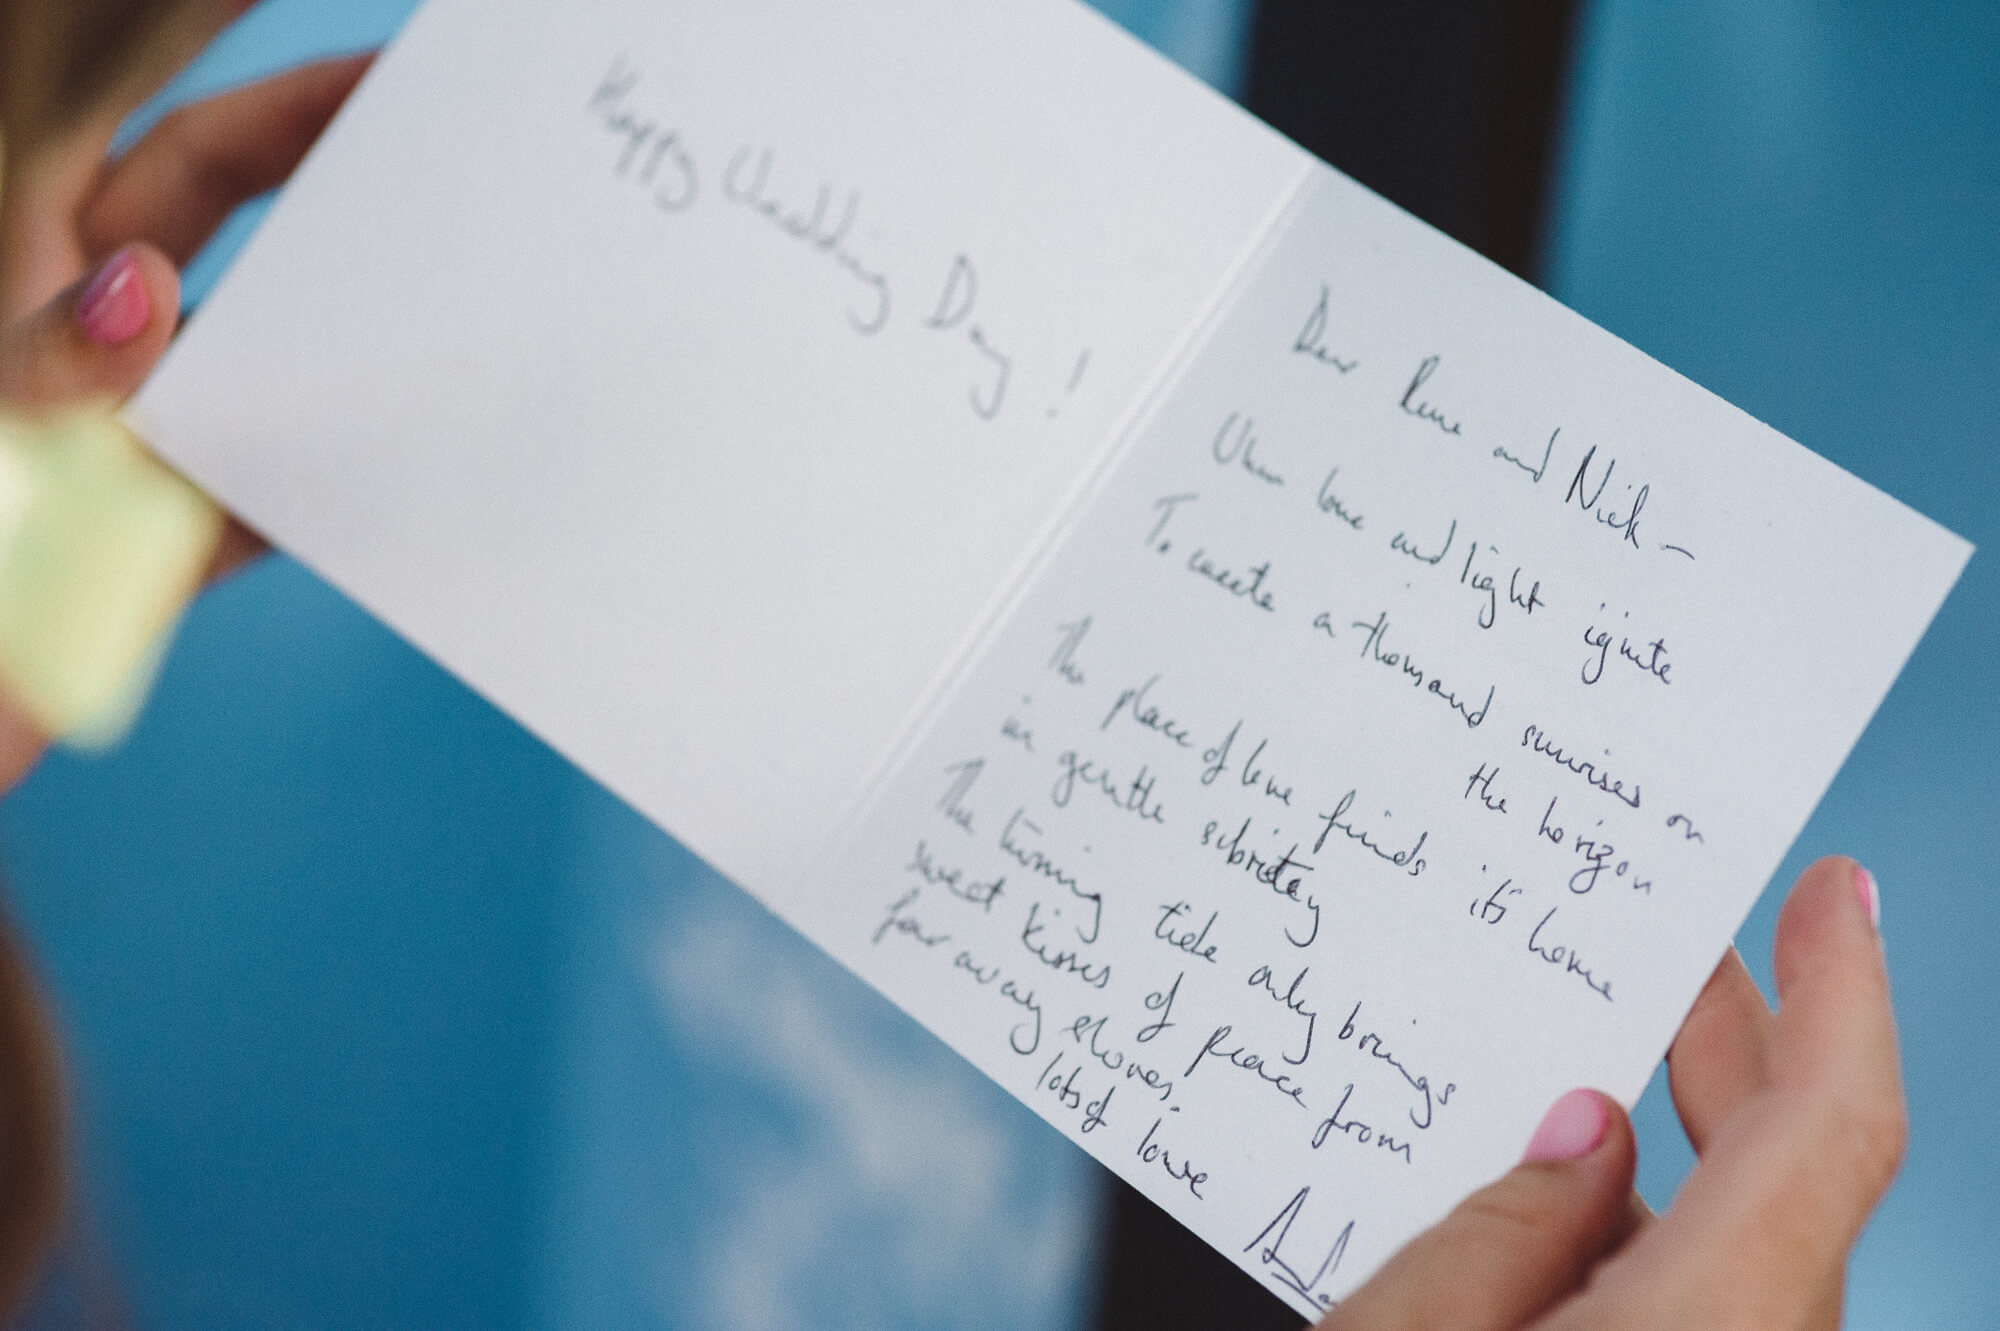 Happy Wedding Day!
Dear Rene and Nick –
When love and light ignite
To create a thousand sunrises on
the horizon
The place of love finds its home
in gentle sobriety
The turning tide only brings
sweet kisses of peace from
far away shores.
lots of love